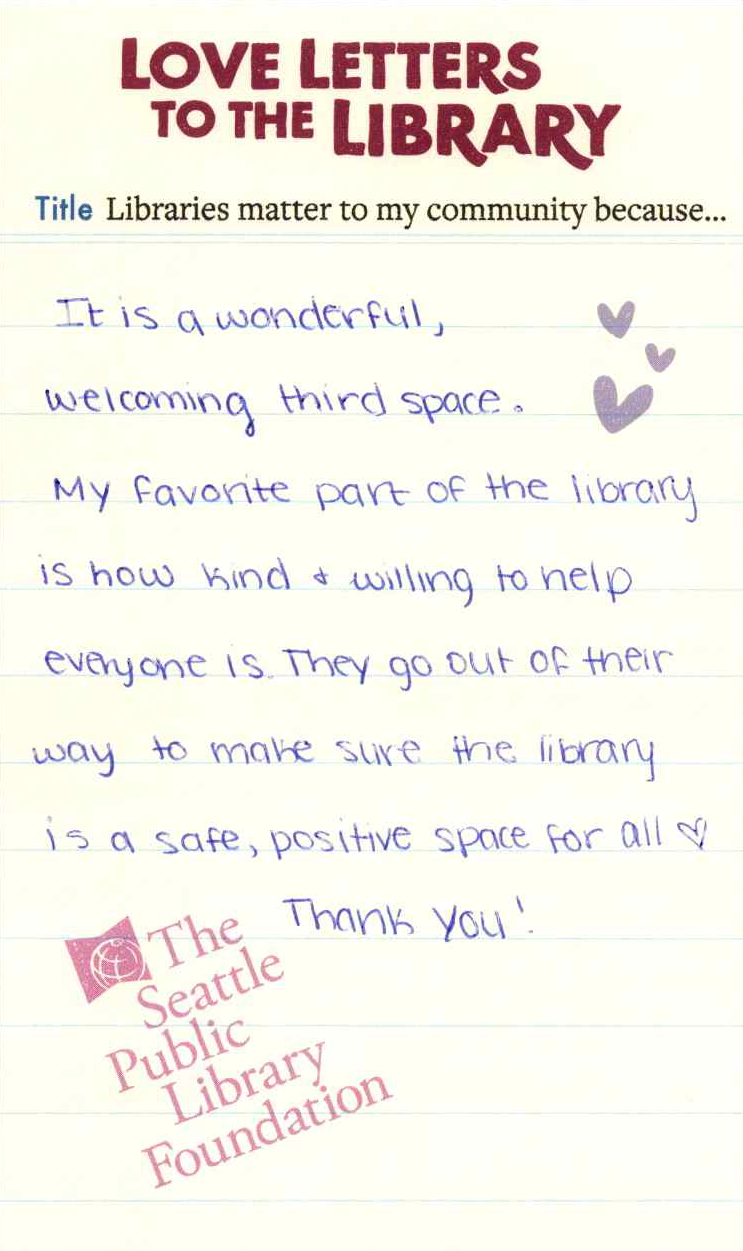 LOVE LETTERS
TO THE LIBRARY
Title Libraries matter to my community because...
It is a wonderful,
welcoming third space.
My favorite part of the library
is how kind + willing to help
everyone is. They go out of their
way to make sure the library
is a safe, positive space for all ♡
Thank you!
The
Seattle
Public
Library
Foundation